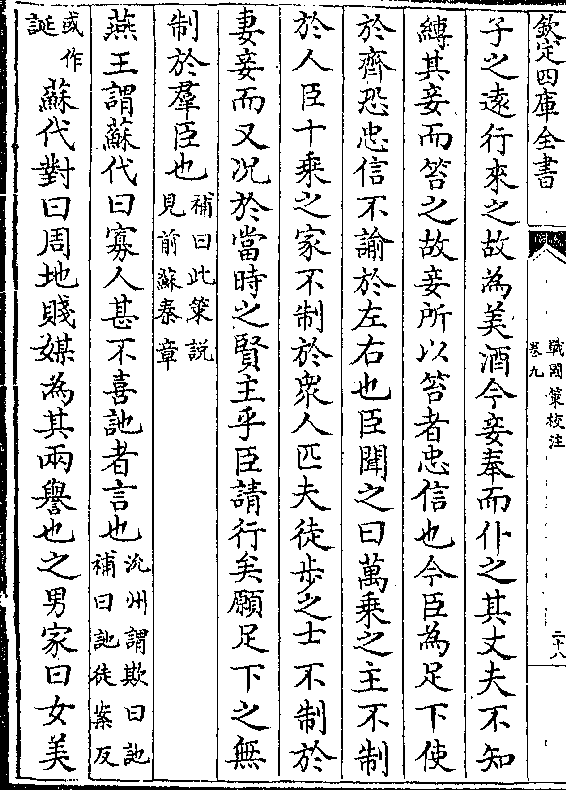 欽定四庫全書
戰國策校注
卷九
二十八
子之遠行來之故為美酒今妾奉而仆之其丈夫不知
縛其妾而笞之故妾所以笞者忠信也今臣為足下使
於齊恐忠信不諭於左右也臣聞之曰萬乘之主不制
於人臣十乘之家不制於衆人匹夫徒步之士不制於
妻妾而又况於當時之賢主乎臣請行矣願足下之無
制於羣臣也補曰此策説
見前蘇秦章
燕王謂蘇代曰寡人甚不喜訑者言也沇州謂欺曰訑
補曰訑徒案反
或作
誕
蘇代對曰周地賤媒為其兩譽也之男家曰女美